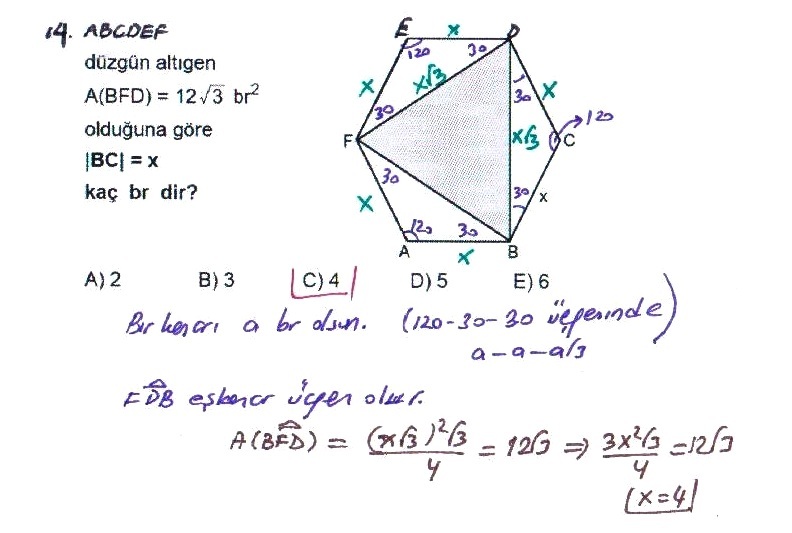 14. ABCDEF
düzgün altıgen
A(BFD) = 12√3 br²
olduğuna göre
|BC| = x
kaç br dir?
E x D
120 30
x x√3 30 x
30
F x√3 C 120
30 30 x
x
120 30
A x B
A) 2 B) 3 C) 4 D) 5 E) 6
Bir kenarı a br olsun. (120-30-30 üçgeninde)
a-a-a√3
FDB eşkenar üçgen olur.
A(BFD) = (x√3)²√3/4 = 12√3 ⇒ 3x²√3/4 = 12√3
x=4